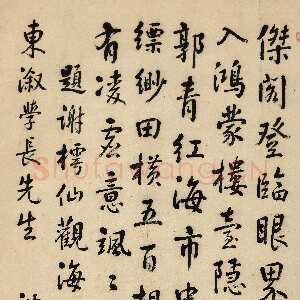 傑閣登臨眼界
入鴻蒙樓臺隱
郭青紅海市
縹緲田橫五百
有凌雲意諷ミ
題謝樗仙觀海
東淑學長先生